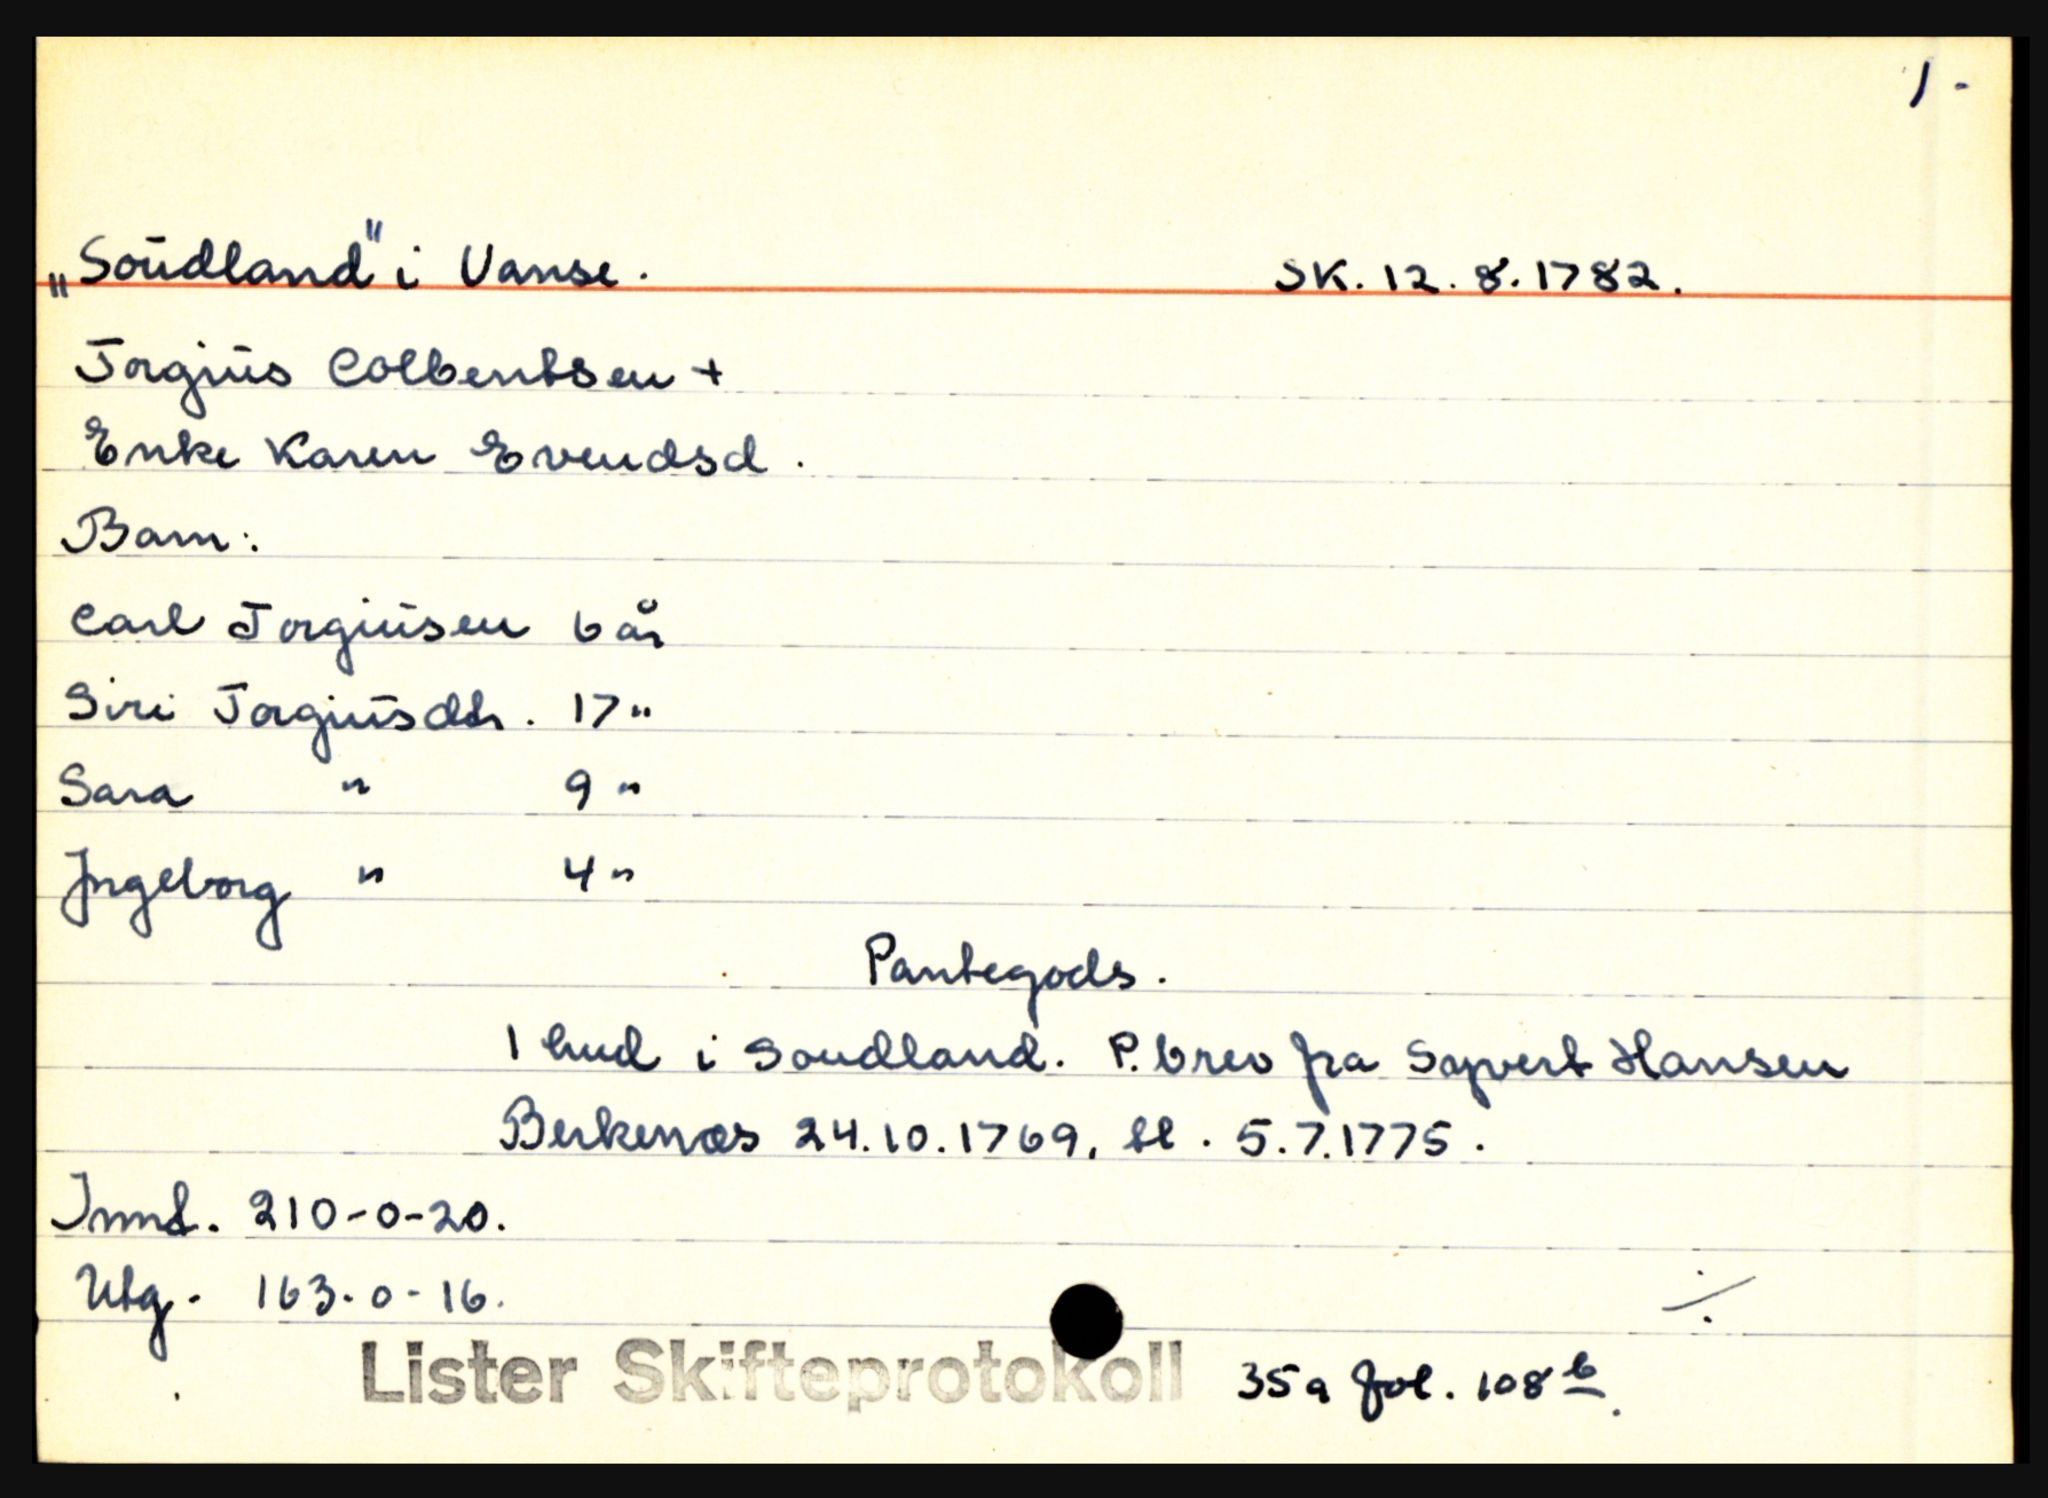 1-
„Soudland" i Vanse. SK. 12.8.1782.
Torgius Colbentsen +
Enke Karen Evendsd.
Barn:
Carl Torgiusen 6 år
Siri Torgiusdtr. 17 "
Sara " 9 "
Ingeborg " 4 "
Pantegods.
1 hud i Soudland. P. brev fra Syvert Hansen
Berkenæs 24.10.1769, tl. 5.7.1775.
Innt. 210-0-20.
Utg. 163-0-16.
Lister Skifteprotokoll 35a fol. 108b.